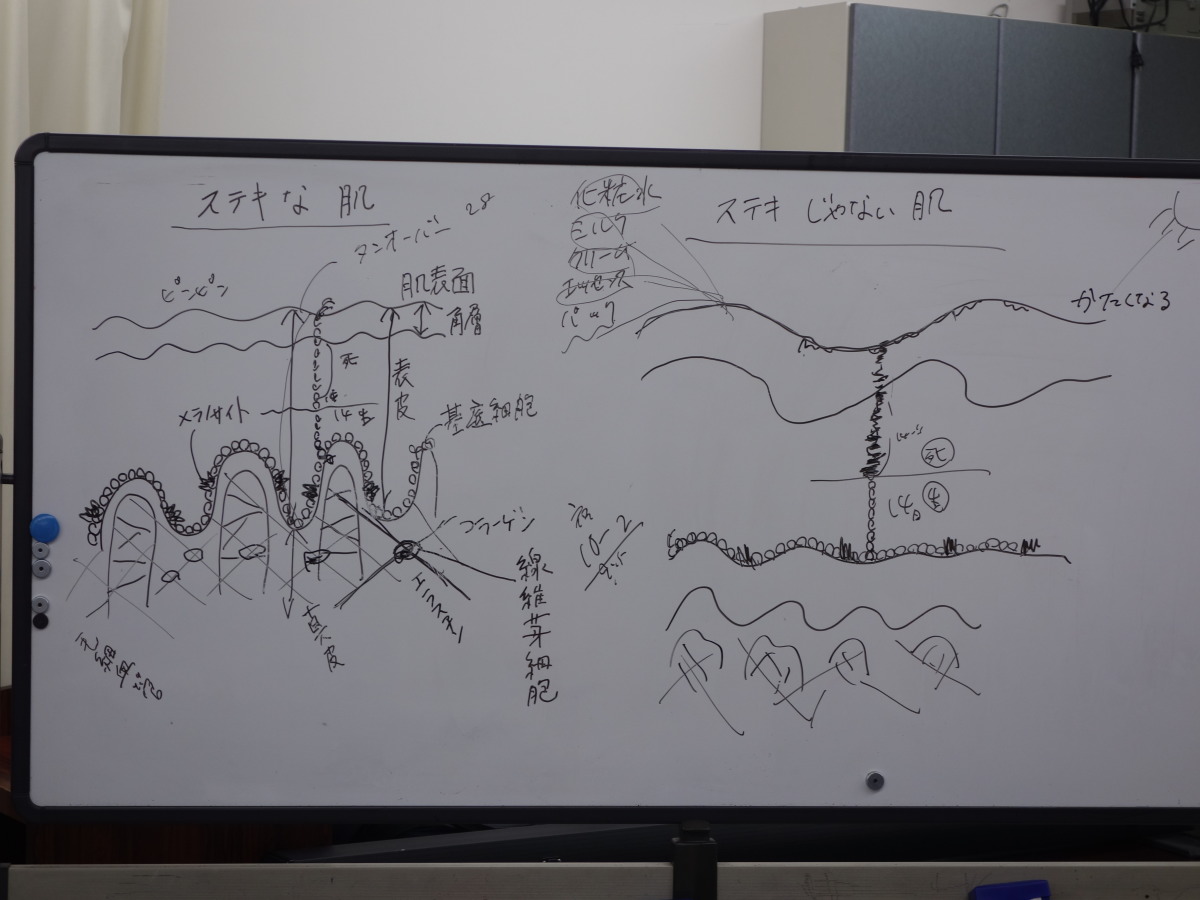 ステキな 肌
タンオーバー 28
ピンピン
肌表面
角層
死
表皮
14生
メラノサイト
基底細胞
コラーゲン
エラスチン
線維芽細胞
真皮
毛細血管
化粧水
ミルク
クリーム
エッセンス
パック
ステキ じゃない 肌
かたくなる
死
14日 生